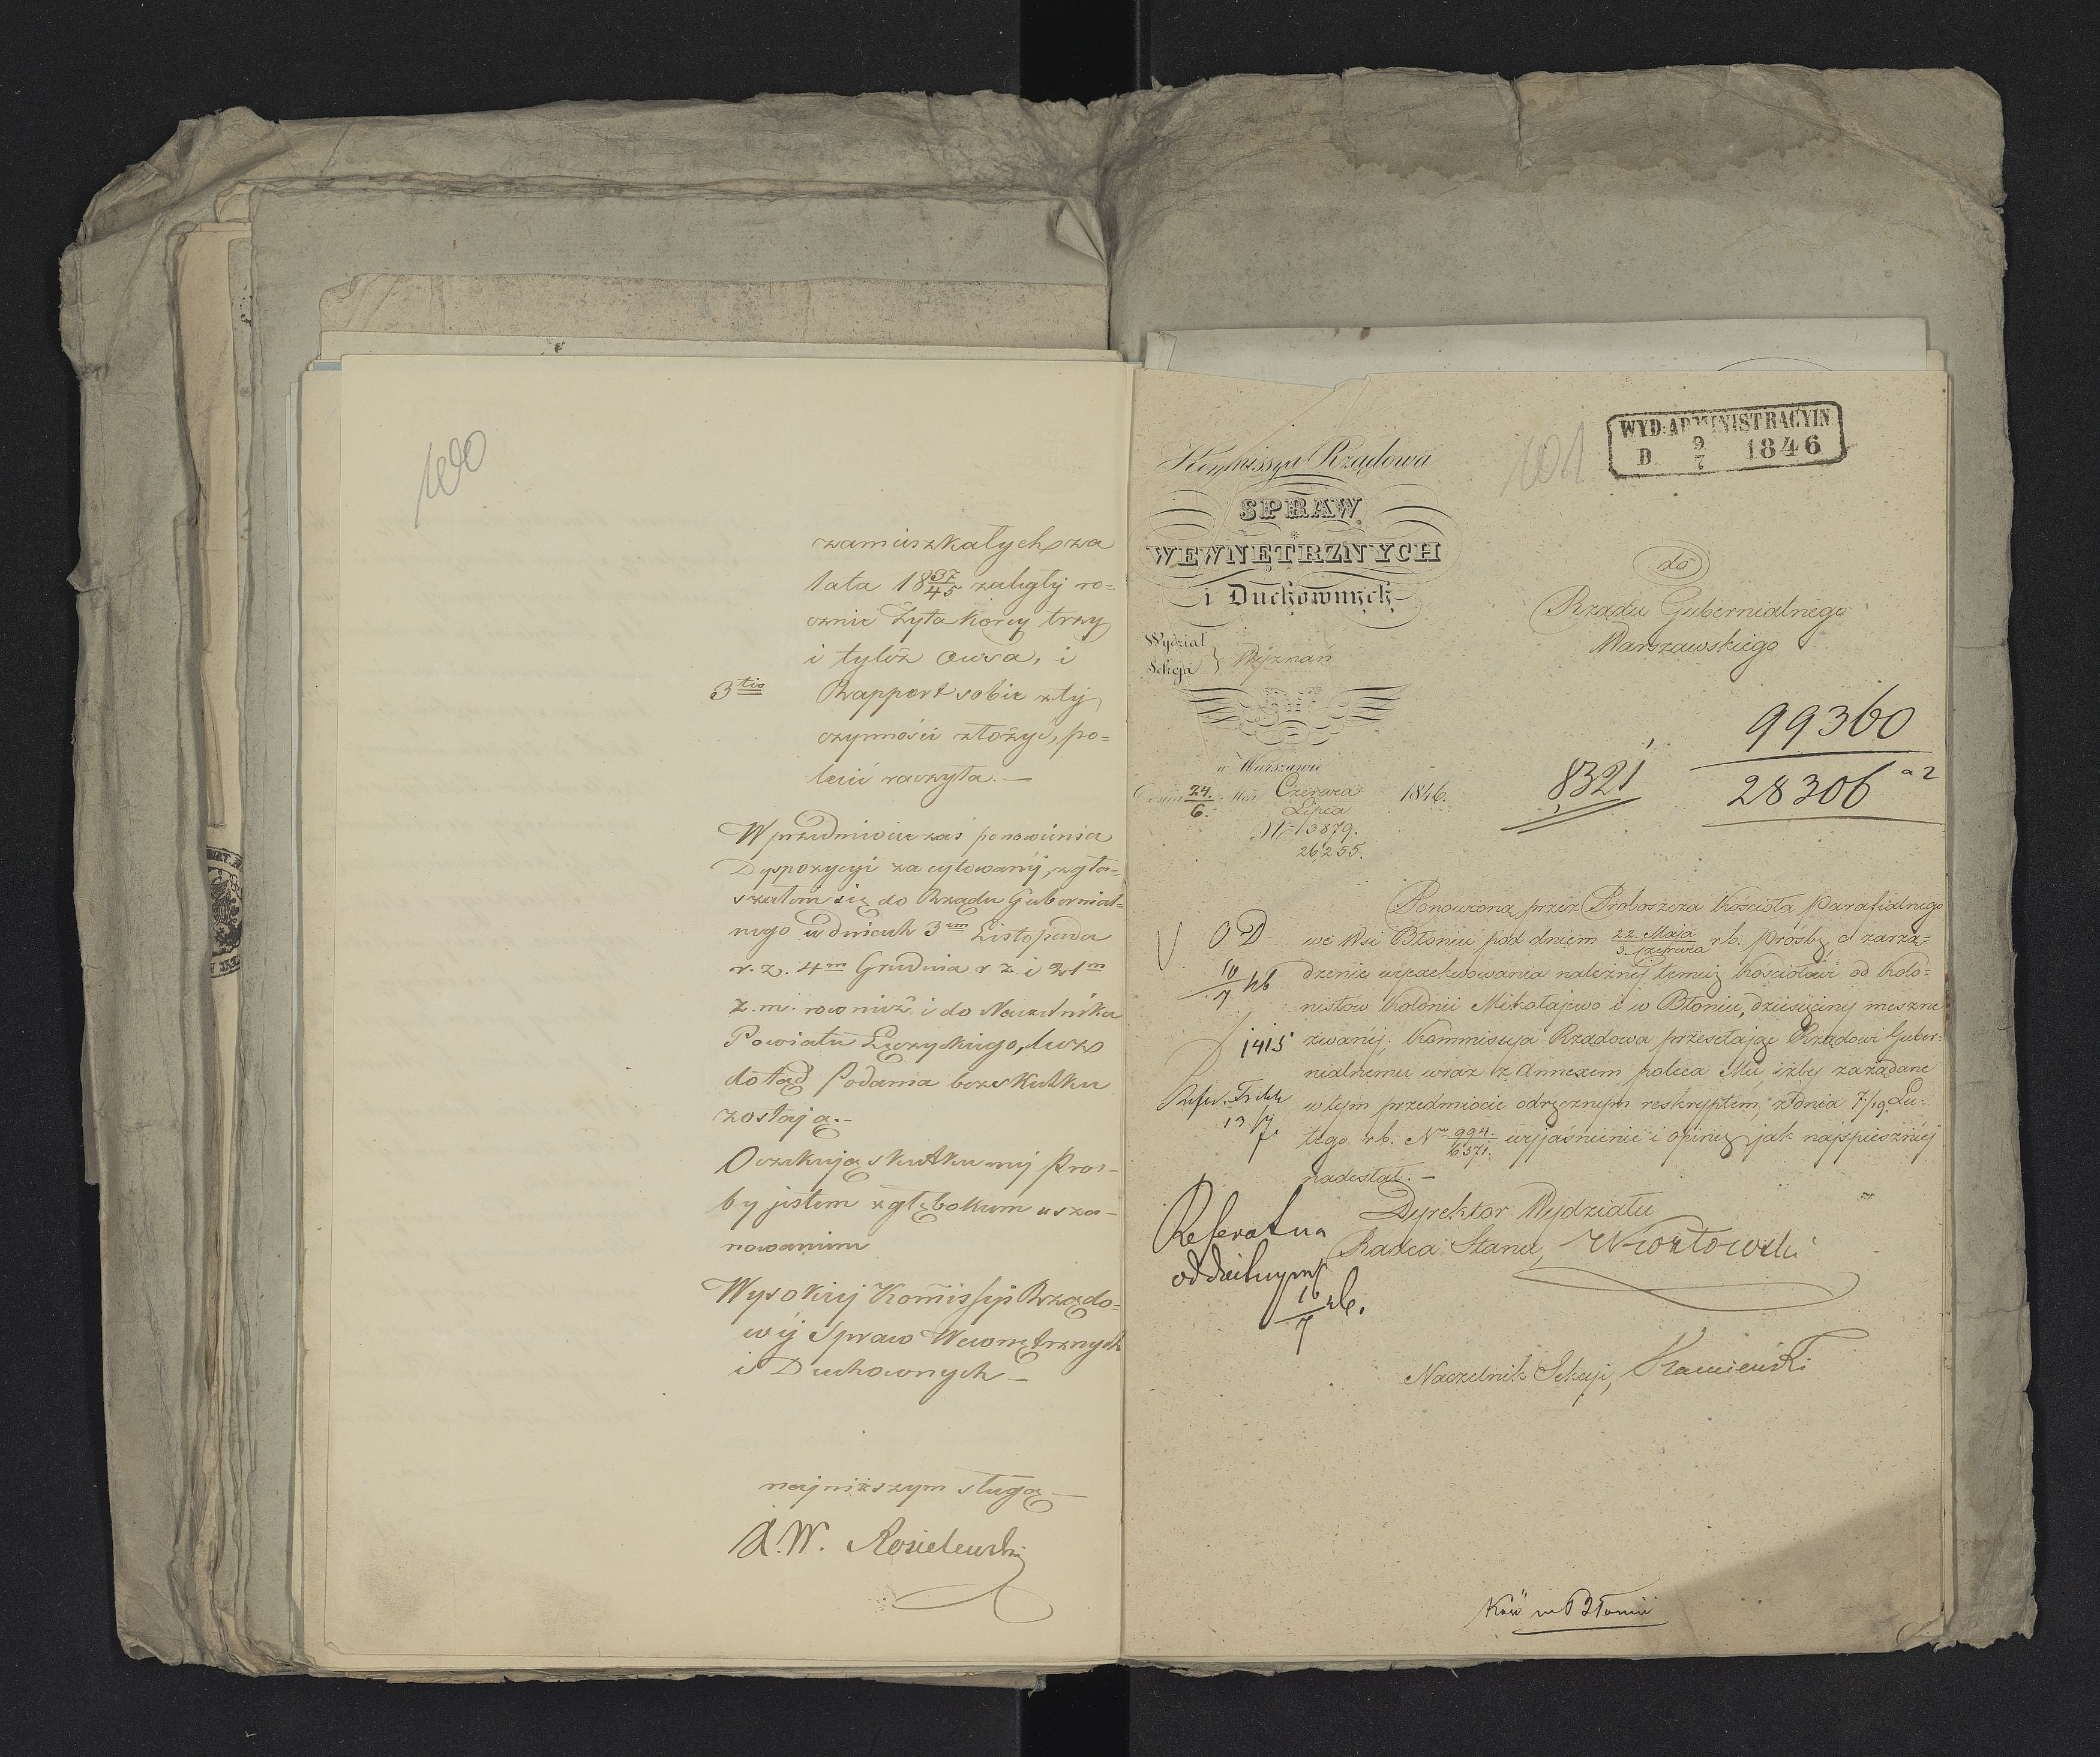 100
zamieszkałych za
lata 18 37/45 zaległy ro=
cznie Żyta korcy trzy
i tyloż Owsa, i
3tio Rapport sobie z tej
czynności złożyć, po=
lecić raczyła. —
W przedmiocie zaś ponowienia
Dyspozycyi zacytowanéj, zgła=
szałem się do Rządu Gubernial=
nego w dniach 3em Listopada
r. z. 4m Grudnia r z i 21m
z. m. rownież i do Naczelnika
Powiatu Łęczyckiego, lecz
dotąd Podania bezskutku
zostają. —
Oczekując skutku mej Proź=
by jestem z głębokiem usza=
nowaniem
Wysokiej Komissyi Rządo=
wéj Spraw Wewnętrznych
i Duchownych —
najniższym sługą —
X. W. Kosielewski
101
WYD: ADMINISTRACYIN
D 9/7 1846
Kommissya Rządowa
SPRAW
WEWNĘTRZNYCH
i Duchownych
Wydział
Sekcja } Wyznań
w Warszawie
Dnia 24./6. Mca Czerwca/Lipca 1846.
Nr 13879.
26255.
do
Rządu Gubernialnego
Warszawskiego
99360
28306 a2
8321
Ponowioną przez Proboszcza Kościoła Parafialnego
we Wsi Błoniu pod dniem 22. Maja/3. Czerwca rb. prośbę, o zarzą=
dzenie wyexekwowania należnéj temuż Kościołowi od Kolo=
nistów Kolonii Mikołajewo i w Błoniu, dziesięciny meszne
zwanéj, Kommissya Rządowa przesełając Rządowi Guber=
nialnemu wraz z Annexem poleca Mu iżby zażądane
w tym przedmiocie odręcznym reskryptem z dnia 7/19 Lu=
tego rb. Nr 994./6571. wyjaśnienie i opinię jak najspieszniéj
nadesłał. —
O D
10/7 46
1415
13/7
Referat na
oddzielnym
16/7 rb.
Dyrektor Wydziału
Radca Stanu,
Naczelnik Sekcji, Kamieński
Kość w Błoniu